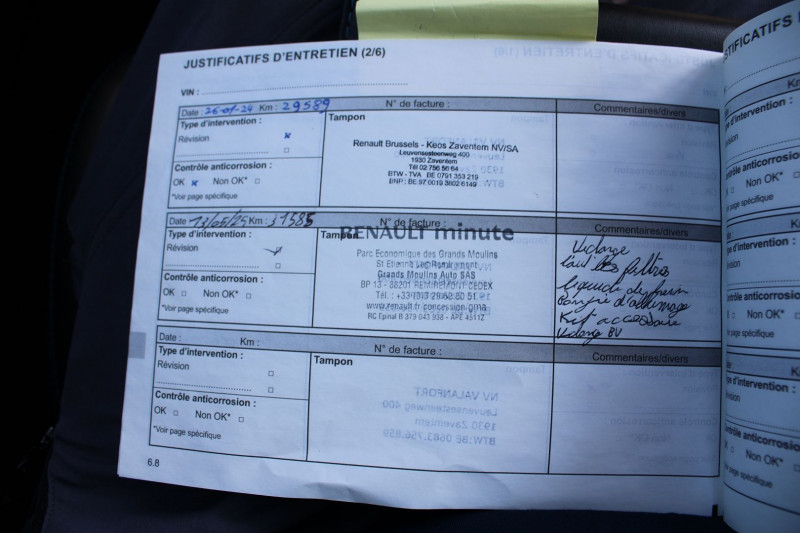 JUSTIFICATIFS D'ENTRETIEN (2/6)
VIN :
Date : 26-01-24 Km : 29589 N° de facture : Commentaires/divers
Type d'intervention :
Révision
Tampon
Renault Brussels - Keos Zaventem NV/SA
Leuvensesteenweg 400
1930 Zaventem
Tél 02 756 56 64
BTW - TVA BE 0791 353 219
BNP : BE 97 0019 3802 6149
Contrôle anticorrosion :
OK Non OK*
*Voir page spécifique
Date 13/05/25 Km : 31585 N° de facture : Commentaires/divers
Type d'intervention :
Révision
Tampon
RENAULT minute
Parc Economique des Grands Moulins
St Etienne Les Remiremont
Grands Moulins Auto SAS
BP 13 - 88201 REMIREMONT CEDEX
Tél. : +33 (0)3 29 62
RC Epinal B 379 043 938 - APE 4511Z
Contrôle anticorrosion :
OK Non OK*
*Voir page spécifique
Vidange
filtres
liquide de frein
Bougie d'allumage
Kit accessoire
Vidange BV
Date : Km : N° de facture : Commentaires/divers
Type d'intervention :
Révision
Tampon
Contrôle anticorrosion :
OK Non OK*
*Voir page spécifique
6.8
Type d'intervention
Révision
Contrôle anticorrosion
OK Non OK*
*Voir page spécifique
Type d'intervention
Révision
Contrôle anticorrosion
OK Non OK*
*Voir page spécifique
Type d'intervention
Révision
Contrôle anticorrosion
OK Non OK*
*Voir page spécifique